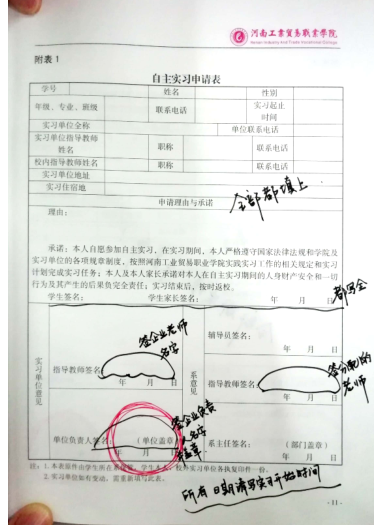 河南工業貿易職業学院
Henan Industry and Trade Vocational College
附表 1
自主实习申请表
学号 姓名 性别
年级、专业、班级 联系电话 实习起止时间
实习单位全称 单位联系电话
实习单位指导教师姓名 职称 联系电话
校内指导教师姓名 职称 联系电话
实习单位地址
实习住宿地
全部都填上
申请理由与承诺
理由:
承诺:本人自愿参加自主实习,在实习期间,本人严格遵守国家法律法规和学院及
实习单位的各项规章制度,按照河南工业贸易职业学院实践实习工作的相关规定和实习
计划完成实习任务;本人及本人家长承诺对本人在自主实习期间的人身财产安全和一切
行为及其产生的后果负完全责任;实习结束后,按时返校。
都写全
学生签名: 学生家长签名: 年 月 日
签企业老师
名字
辅导员签名:
年 月 日
实习单位意见
指导教师签名
年 月 日
系意见
指导教师签名
年 月 日
签分配的
老师
签企业负责
人名字
盖章
单位负责人签名: (单位盖章)
年 月 日
系主任签名: (部门盖章)
年 月 日
注:1.本表原件由学生所在系保留,学生本人、校外实习单位各执复印件一份。
2.实习单位如有变动,需重新填写此表。
所有日期请写实习开始时间
- 11 -